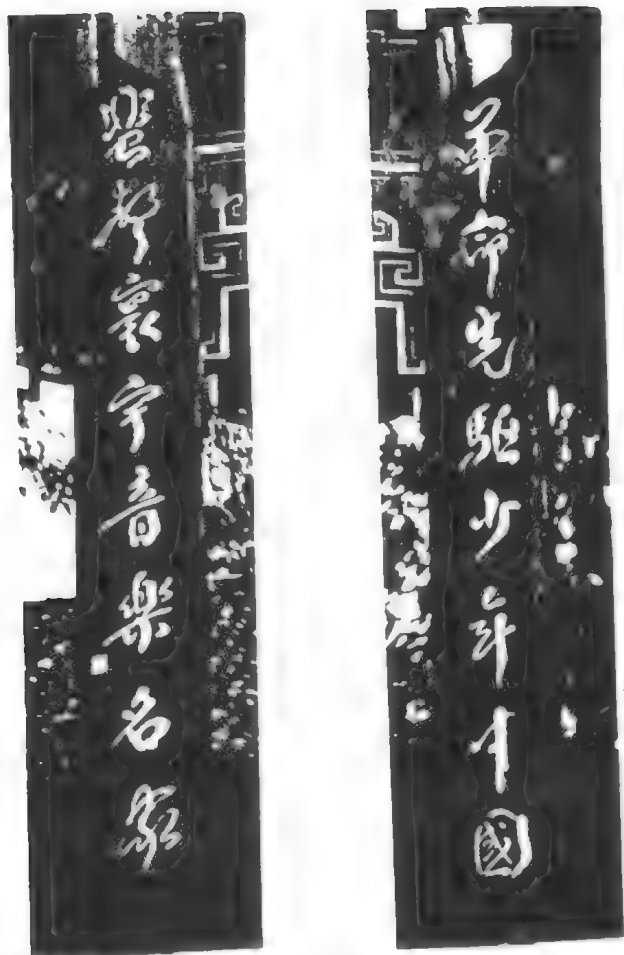 革命先駈少年中國
蜚聲寰宇音樂名家